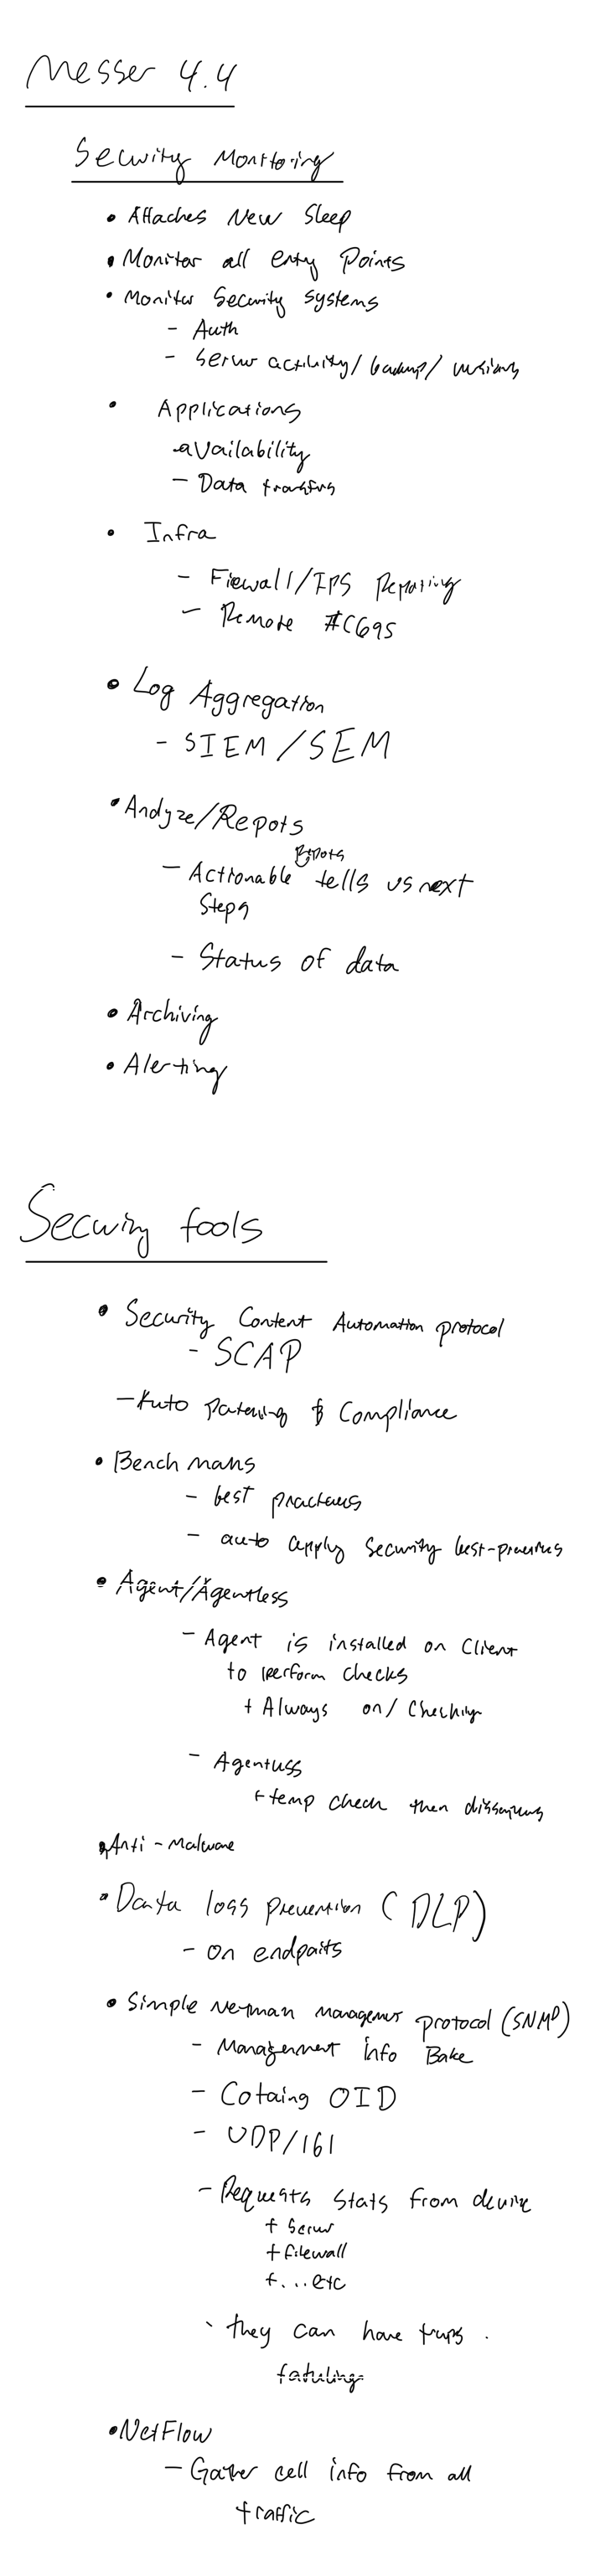 Messer 4.4
Security Monitoring
• Attaches New Sleep
• Monitor all entry Points
• Monitor Security systems
- Auth
- Server activity/ backup/ versions
• Applications
- availability
- Data transfers
• Infra
- Firewall/IPS Reporting
- Remote
• Log Aggregation
- SIEM/SEM
• Analyze/Repots
Repots
- Actionable tells us next
Steps
- Status of data
• Archiving
• Alerting
Security tools
• Security Content Automation protocol
- SCAP
- Auto Patching & Compliance
• Bench marks
- best practices
- auto apply Security best-practices
• Agent/Agentless
- Agent is installed on Client
to perform checks
+ Always on/ Checking
- Agentless
+ temp check then dissapears
• Anti-Malware
• Data loss prevention (DLP)
- on endpoits
• Simple Management protocol (SNMP)
- Management info Bake
- Cotaing OID
- UDP/161
- Requests Stats from device
+ Server
+ firewall
+ ...etc
- they can have traps.
• NetFlow
- Gather cell info from all
traffic